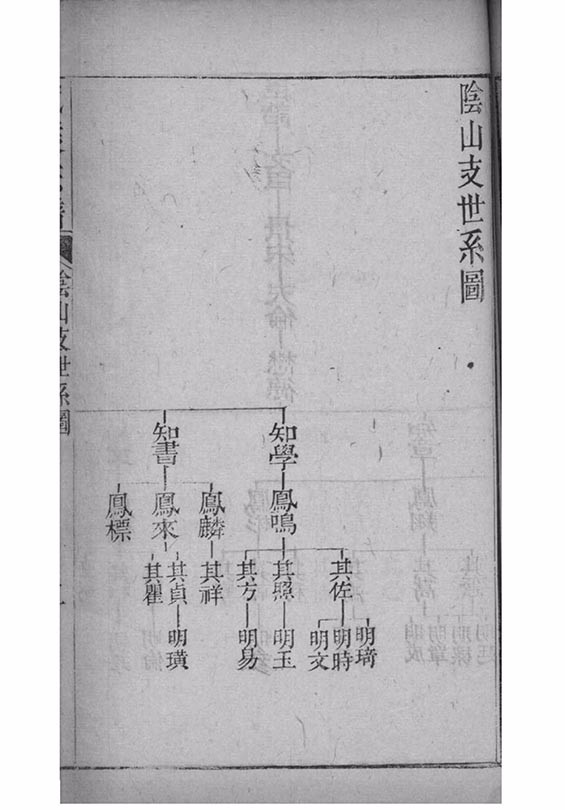 陰山支世系圖
知學
鳳鳴
其佐
明琦
明時
明文
其照
明玉
其方
明易
知書
鳳麟
其祥
鳳來
其貞
明璜
其瞿
鳳標
陰山支世系圖